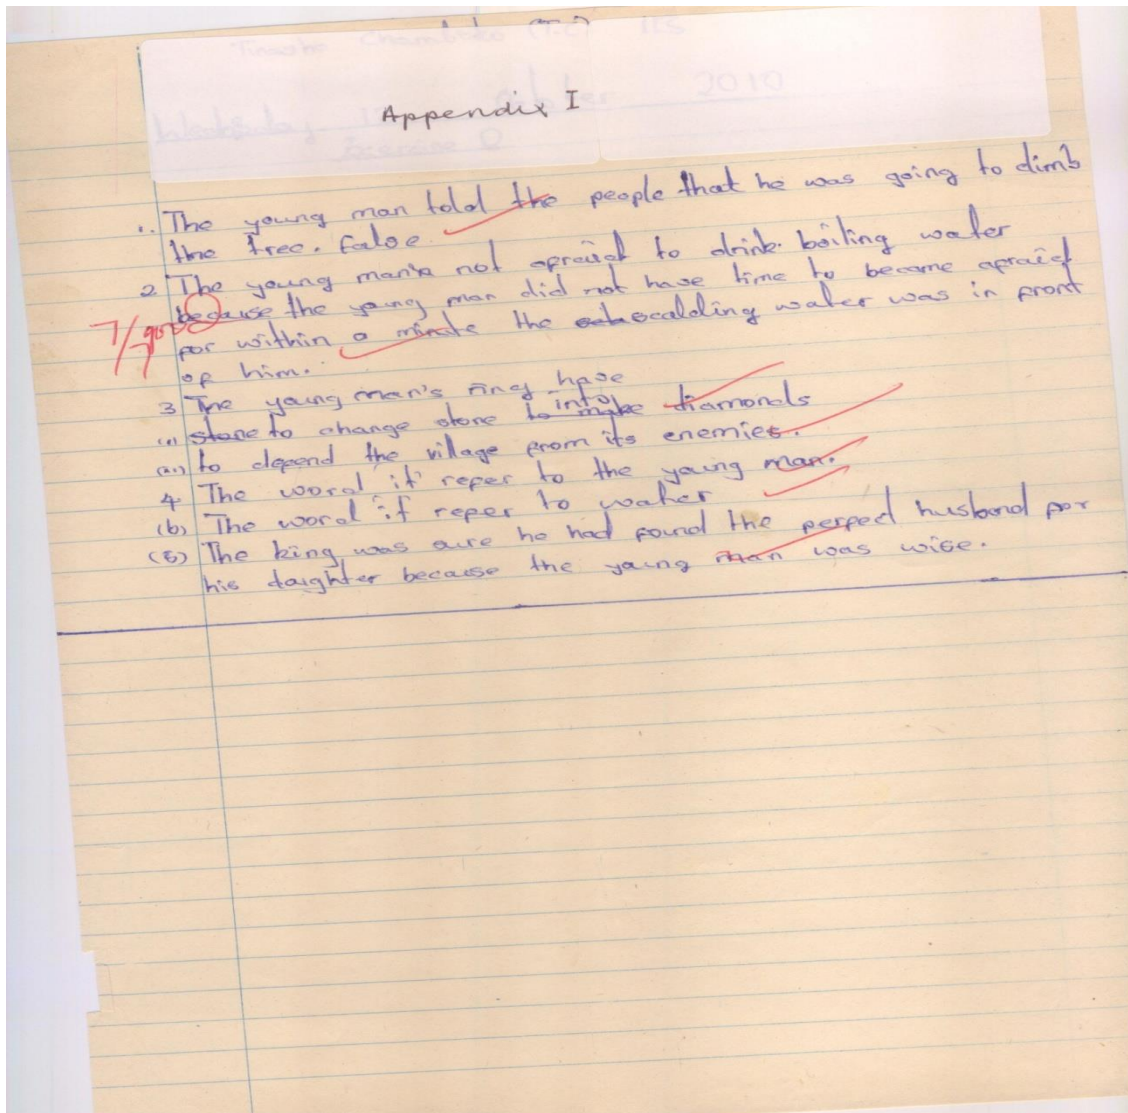 Appendix I
2010
1. The young man told the people that he was going to climb
the tree. false
2 The young man's not apraid to drink boiling water
because the young man did not have time to become apraid
por within a minute the scalding water was in pront
op him.
7/7
3 The young man's ring have
(i) to change stone into diamonds
(ii) to depend the village prom its enemies.
4 The word 'it' reper to the young man.
(b) The word 'it' reper to water
(5) The king was sure he had pound the perpect husband por
his daighter because the young man was wise.